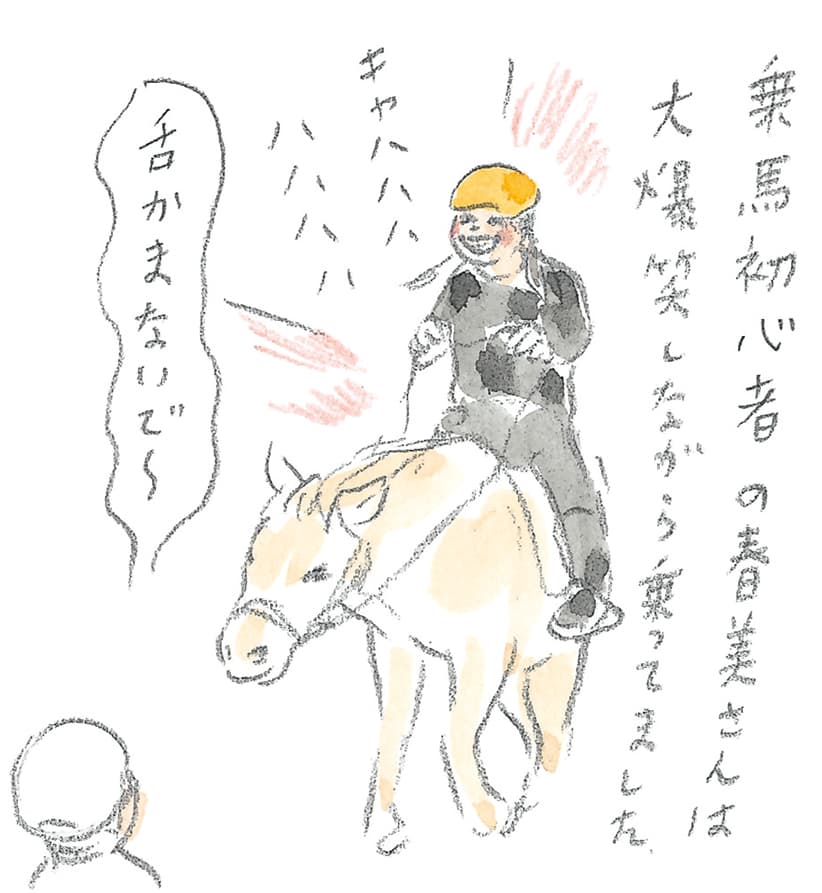 乗馬初心者の春美さんは
大爆笑しながら乗ってました。
キャハハハ
ハハハハ
舌かまないで〜